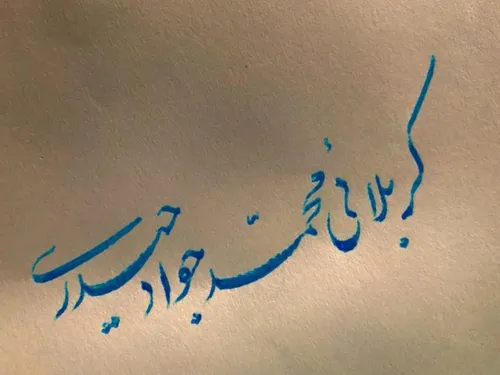 کربلائی محمد جواد حیدری